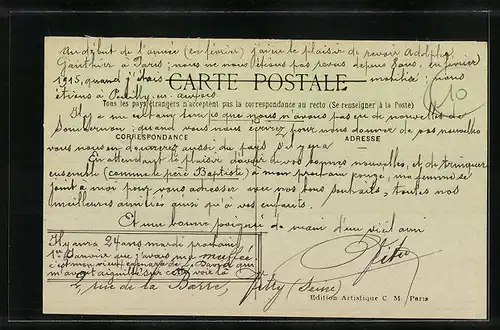 au début de l'année (en février) j'ai eu le plaisir de revoir Adolphe
Gauthier à Paris; nous ne nous étions pas revus depuis 8 ans, en février
1915, quand j'étais mobilisé; nous
CARTE POSTALE
étions à
Tous les pays étrangers n'acceptent pas la correspondance au recto (Se renseigner à la Poste)
10
Il y a un certain temps que nous n'avons pas eu de nouvelles de
quand vous nous écrirez, pour nous donner de vos nouvelles
CORRESPONDANCE
ADRESSE
vous nous en donnerez aussi du pays
En attendant le plaisir d'avoir de vos bonnes nouvelles, et de trinquer
ensemble (comme le père Baptiste) à mon prochain congé, ma femme se
joint à moi pour vous adresser avec nos bons souhaits, toutes nos
meilleures amitiés ainsi qu'à vos enfants.
Et une bonne poignée de main d'un vieil ami
Il y aura 24 ans mardi prochain
1er Janvier que j'avais ma
c'est mon vieux camarade
m'avait aiguillé sur cette voie là
2, rue de la Barre, Vitry (Seine)
Edition Artistique C. M. Paris